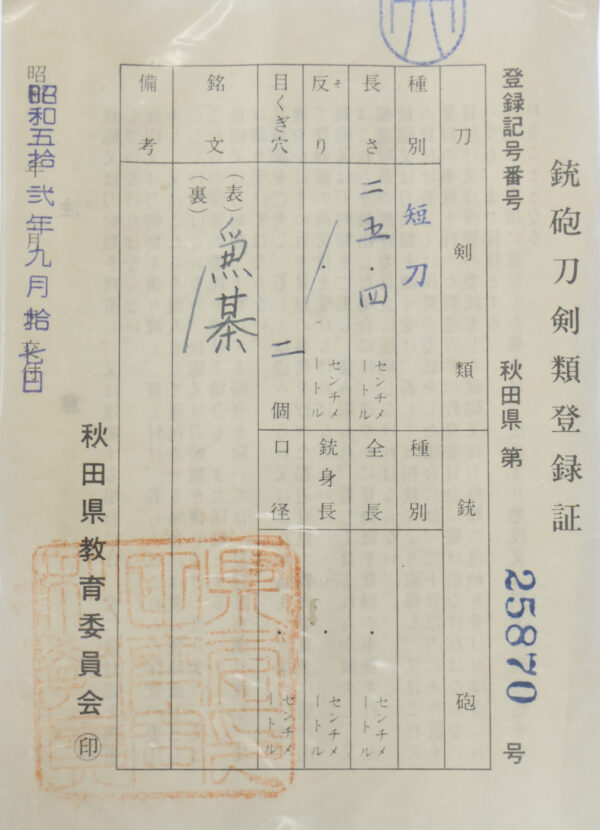 銃砲刀剣類登録証
登録記号番号 秋田県 第 25870 号
刀剣類
銃砲
種別 短刀
種別
長さ 二五・四 センチメートル
全長 ・ センチメートル
反り ・ センチメートル
銃身長 ・ センチメートル
目くぎ穴 二 個
口径 ・ センチメートル
銘文 (表)
(裏)
備考
秋田県教育委員会 ㊞
昭和五拾弐年九月拾七日